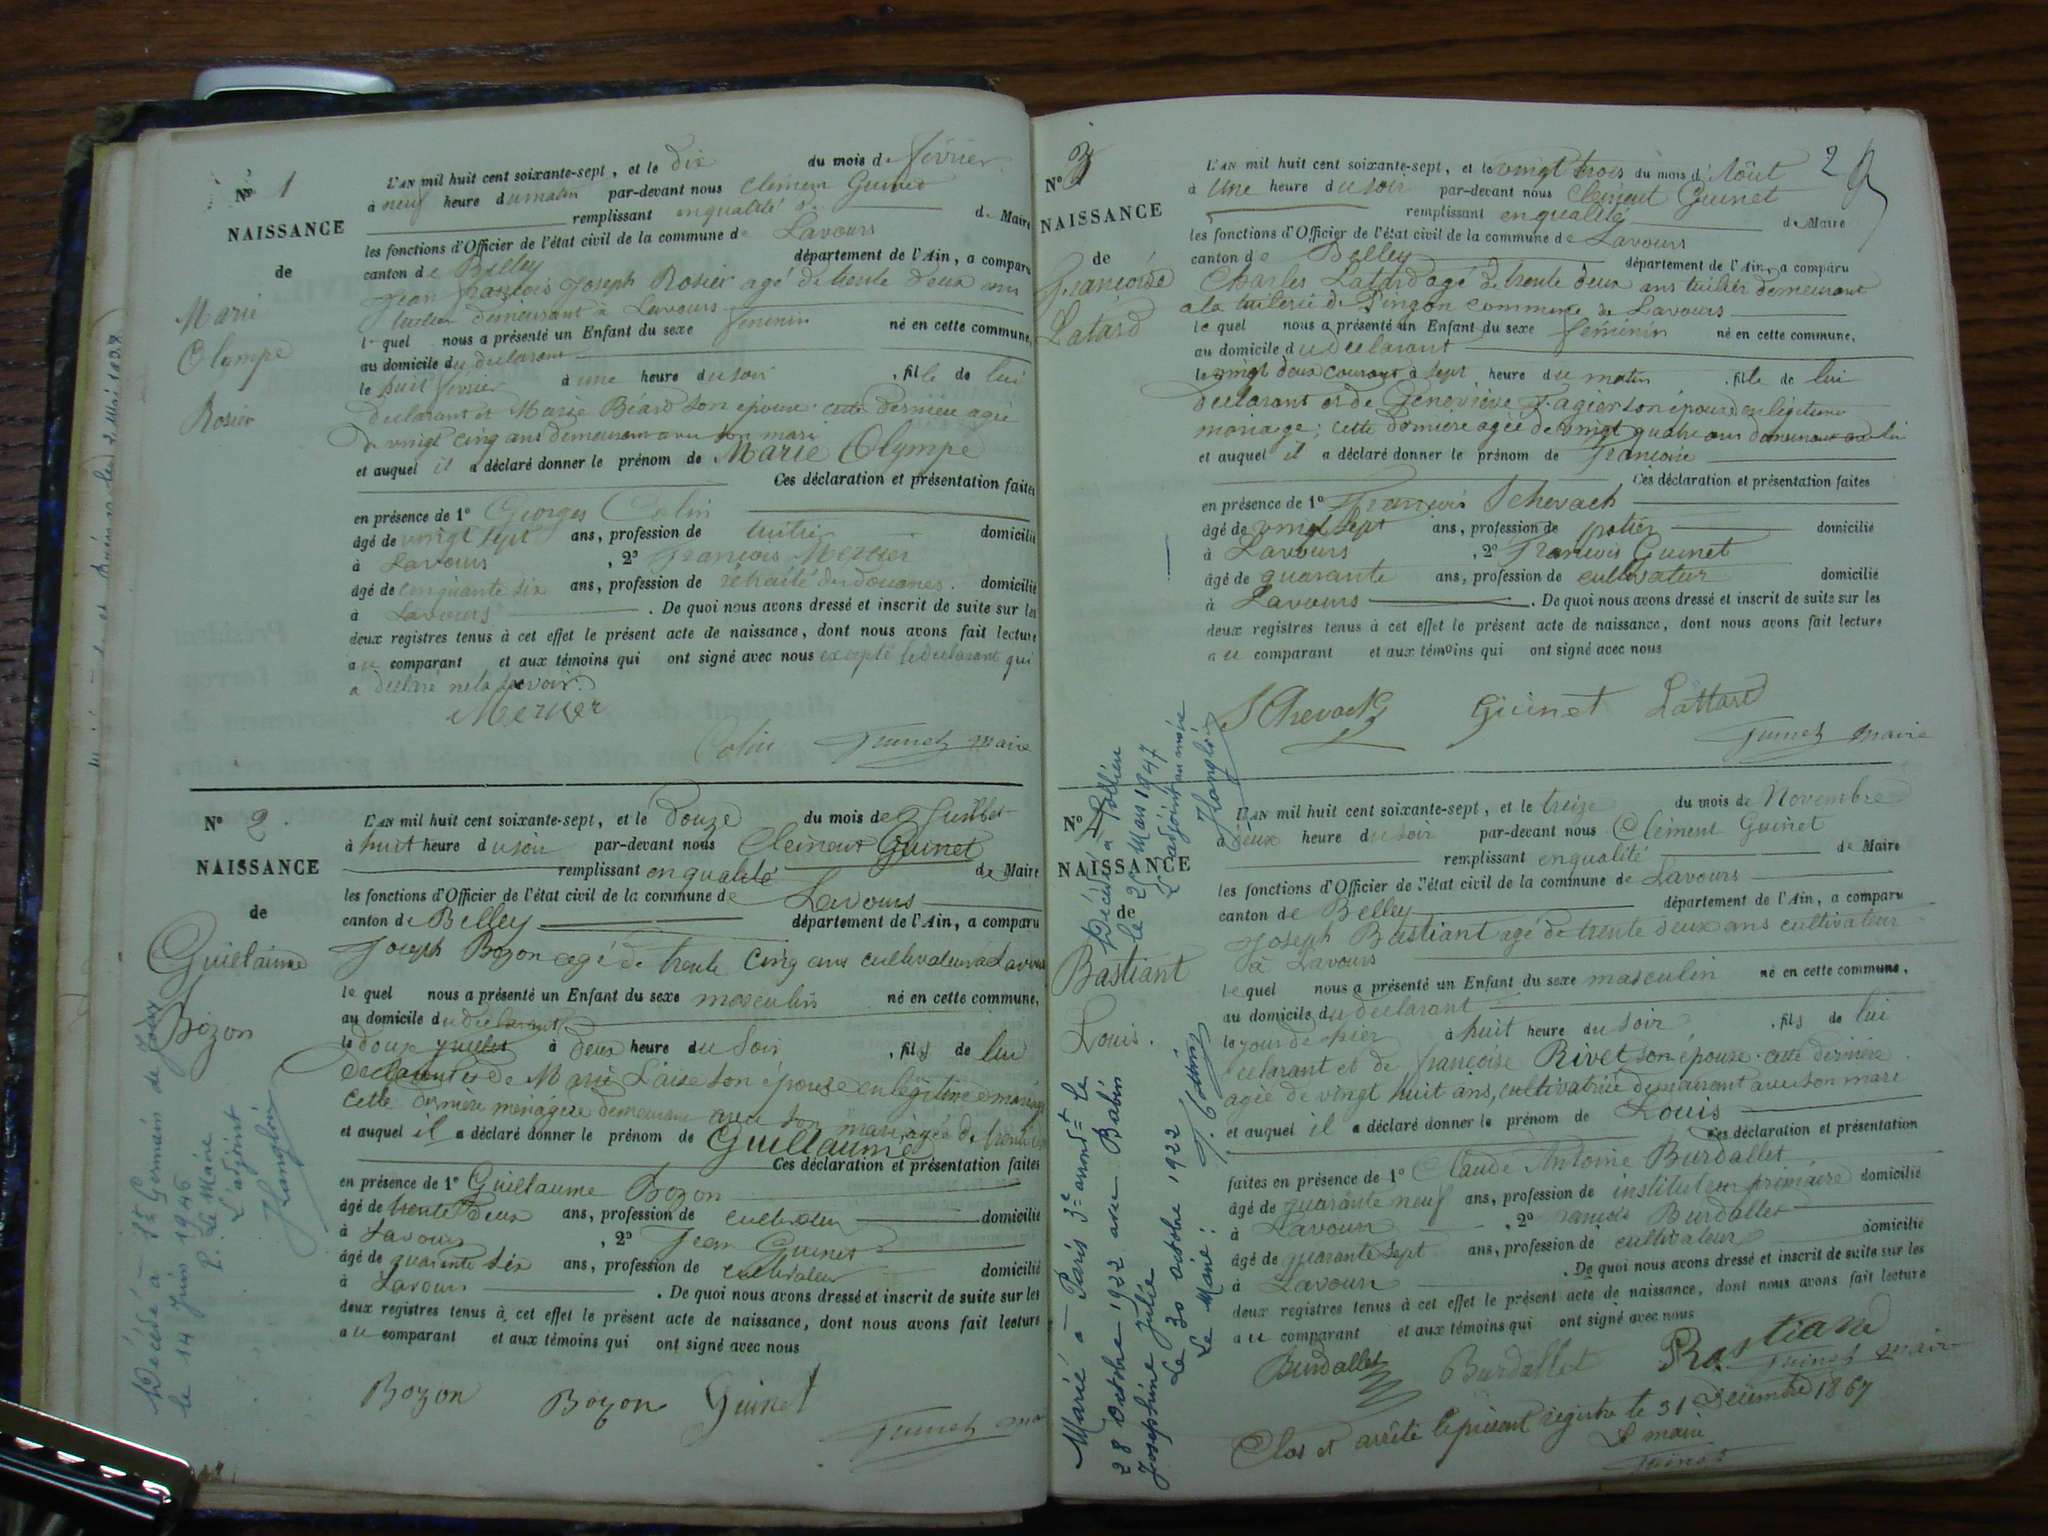 N° 1
NAISSANCE
de
Marie
Olympe
Rosier
L'AN mil huit cent soixante-sept, et le dix du mois de février
à neuf heure du matin par-devant nous Clément Guinet
remplissant en qualité de de Maire
les fonctions d'Officier de l'état civil de la commune de Lavours
canton de Belley département de l'Ain, a comparu
Jean François Joseph Rosier agé de trente deux ans
tuilier demeurant à Lavours
lequel nous a présenté un Enfant du sexe féminin né en cette commune,
au domicile du déclarant
le huit février à une heure du soir, fille de lui
déclarant et Marie Béard son épouse cette dernière agée
de vingt cinq ans demeurant avec son mari
et auquel il a déclaré donner le prénom de Marie Olympe
Ces déclaration et présentation faites
en présence de 1° Georges Colin
âgé de vingt sept ans, profession de tuilier domicilié
à Lavours, 2° François Mercier
âgé de cinquante six ans, profession de retraité des douanes. domicilié
à Lavours. De quoi nous avons dressé et inscrit de suite sur les
deux registres tenus à cet effet le présent acte de naissance, dont nous avons fait lecture
au comparant et aux témoins qui ont signé avec nous excepté le déclarant qui
a déclaré ne la savoir.
Mercier
Colin Guinet maire
N° 2.
NAISSANCE
de
Guillaume
Bozon
L'AN mil huit cent soixante-sept, et le douze du mois de Juillet
à huit heure du soir par-devant nous Clément Guinet
remplissant en qualité de Maire
les fonctions d'Officier de l'état civil de la commune de Lavours
canton de Belley département de l'Ain, a comparu
Joseph Bozon agé de trente cinq ans cultivateur à Lavours
lequel nous a présenté un Enfant du sexe masculin né en cette commune,
au domicile du déclarant
le douze juillet à deux heure du soir, fils de lui
déclarant et de Marie son épouse en légitime mariage
cette dernière ménagère demeurant avec son mari agée de trente
et auquel il a déclaré donner le prénom de Guillaume
Ces déclaration et présentation faites
en présence de 1° Guillaume Bozon
âgé de trente deux ans, profession de cultivateur domicilié
à Lavours, 2° Jean Guinet
âgé de quarante six ans, profession de cultivateur domicilié
à Lavours. De quoi nous avons dressé et inscrit de suite sur les
deux registres tenus à cet effet le présent acte de naissance, dont nous avons fait lecture
au comparant et aux témoins qui ont signé avec nous
Bozon Bozon Guinet
Guinet
Décédé à St Germain de Joux
le 14 Juin 1946
P. Le Maire
L'adjoint
N° 3
NAISSANCE
de
Françoise
Latard
2
L'AN mil huit cent soixante-sept, et le vingt trois du mois d'Aôut
à une heure du soir par-devant nous Clément Guinet
remplissant en qualité de Maire
les fonctions d'Officier de l'état civil de la commune de Lavours
canton de Belley département de l'Ain, a comparu
Charles Latard agé de trente deux ans tuilier demeurant
a la tuilerie de commune de Lavours
lequel nous a présenté un Enfant du sexe féminin né en cette commune,
au domicile du déclarant
le vingt deux courant à sept heure du matin, fille de lui
déclarant et de Geneviève son épouse en légitime
mariage; cette dernière agée de vingt quatre ans demeurant avec lui
et auquel il a déclaré donner le prénom de Françoise
Ces déclaration et présentation faites
en présence de 1° François Schevach
âgé de vingt sept ans, profession de potier domicilié
à Lavours, 2° François Guinet
âgé de quarante ans, profession de cultivateur domicilié
à Lavours. De quoi nous avons dressé et inscrit de suite sur les
deux registres tenus à cet effet le présent acte de naissance, dont nous avons fait lecture
au comparant et aux témoins qui ont signé avec nous
Guinet Lattard
Guinet maire
N° 4
NAISSANCE
de
Bastiant
Louis.
Décédé à Pollieu
le 2 Mars 1947
L'adjoint au maire
L'AN mil huit cent soixante-sept, et le treize du mois de Novembre
à deux heure du soir par-devant nous Clément Guinet
remplissant en qualité de Maire
les fonctions d'Officier de l'état civil de la commune de Lavours
canton de Belley département de l'Ain, a comparu
Joseph Bastiant agé de trente deux ans cultivateur
à Lavours
lequel nous a présenté un Enfant du sexe masculin né en cette commune,
au domicile du déclarant
le jour de hier à huit heure du soir, fils de lui
déclarant et de françoise Rivet son épouse cette dernière
agée de vingt huit ans, cultivatrice demeurant avec son mari
et auquel il a déclaré donner le prénom de Louis
Ces déclaration et présentation
faites en présence de 1° Claude Antoine Burdallet
âgé de quarante neuf ans, profession de instituteur primaire domicilié
à Lavours, 2° François Burdallet
âgé de quarante sept ans, profession de cultivateur domicilié
à Lavours. De quoi nous avons dressé et inscrit de suite sur les
deux registres tenus à cet effet le présent acte de naissance, dont nous avons fait lecture
au comparant et aux témoins qui ont signé avec nous
Burdallet Burdallet Bastiand
Guinet maire
Clos et arrêté le présent registre le 31 Décembre 1867
Le maire
Guinet
Marié à Paris 3e arrondt le
28 Octobre 1922 avec Babin
Joséphine Julie
Le 30 octobre 1922
Le Maire: